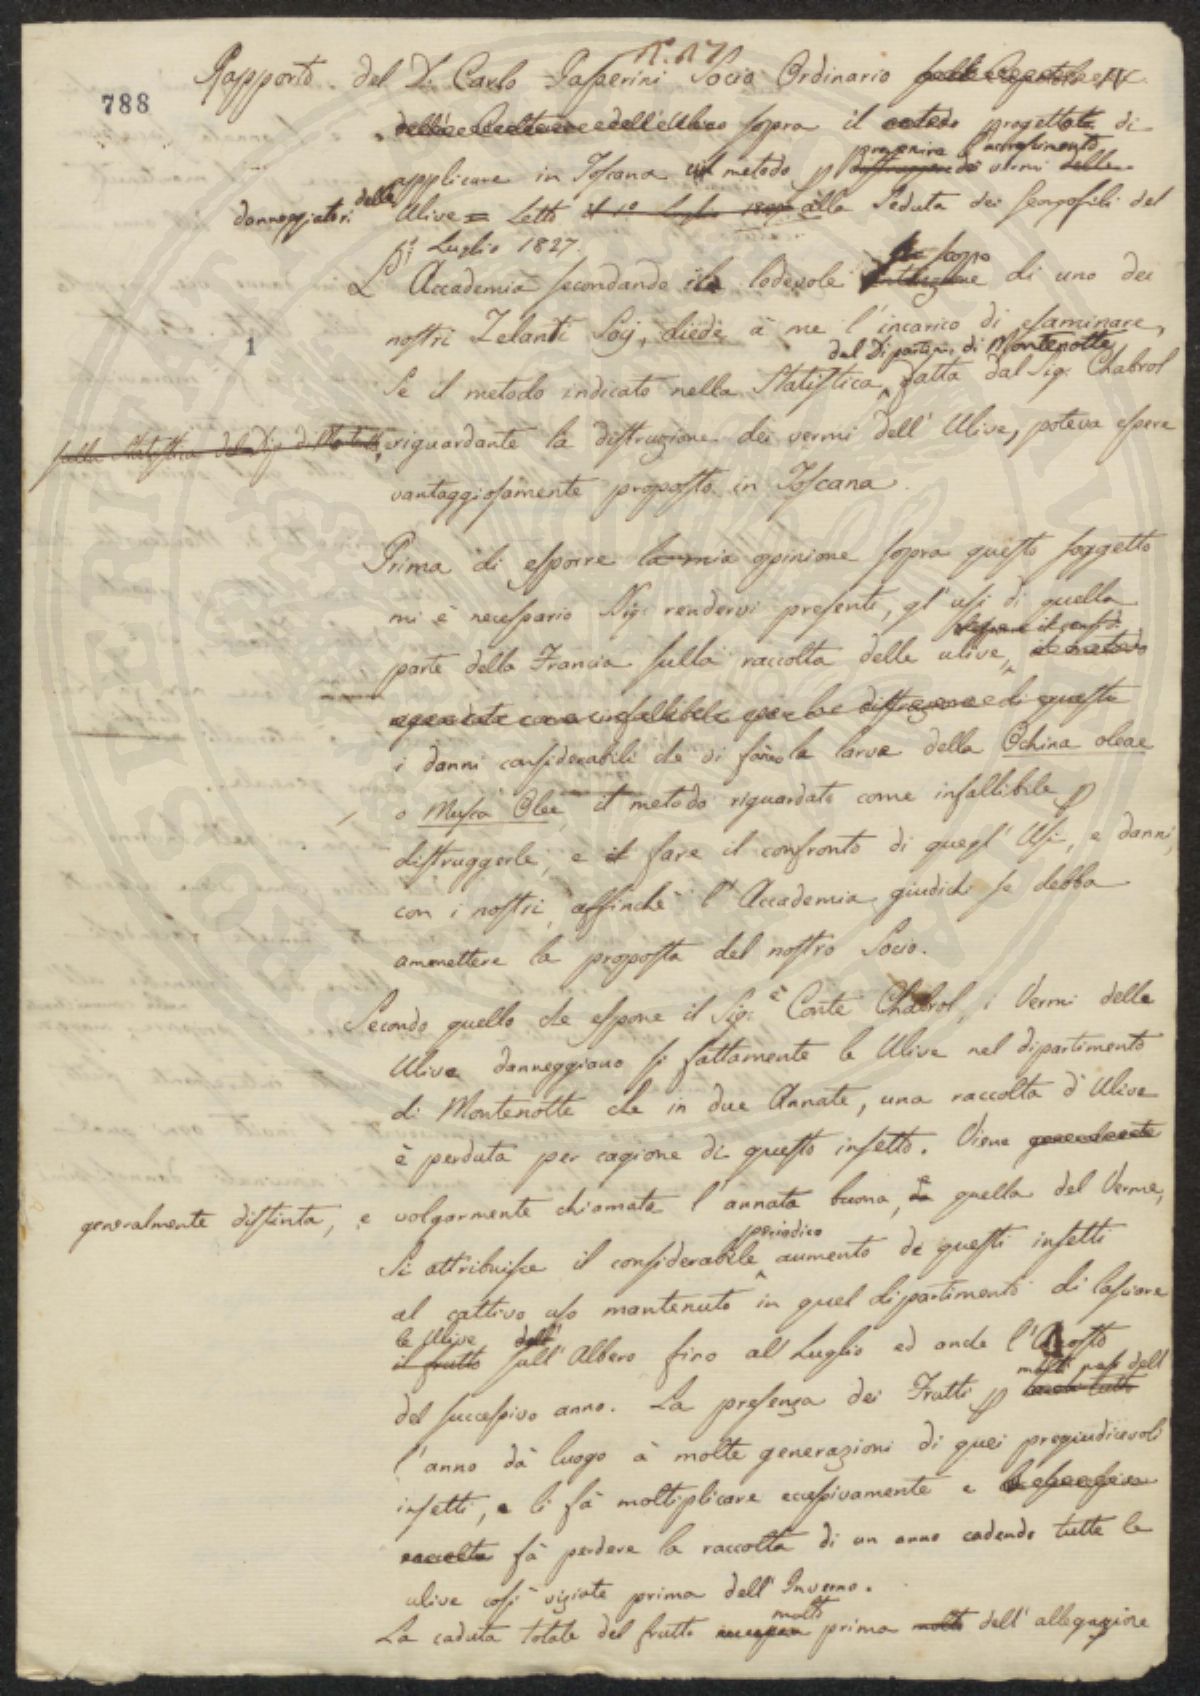 788
Rapporto del D. Carlo Passerini Socio Ordinario
sopra il metodo progettato di
prevenire l'accrescimento
applicare in Toscana un metodo p distruggere i vermi delle
danneggiatori delle Ulive = Letto il 1o Luglio 1827 alla Seduta dei Georgofili del
po Luglio 1827.
L'Accademia secondando lo scopo lodevole di uno dei
nostri Zelanti Socj, diede à me l'incarico di esaminare,
1
dal Dipartim. di Montenotte
Se il metodo indicato nella Statistica fatta dal Sig: Chabrol
riguardante la distruzione dei vermi dell' Ulive, poteva essere
vantaggiosamente proposto in Toscana.
Prima di esporre la mia opinione sopra questo soggetto
mi è necessario Sig: rendervi presenti, gl' usi di quella
parte della Francia sulla raccolta delle ulive, il metodo
riguardato come infallibile per la distruzione di questi
i danni considerabili che vi fanno le larve della Oschina oleae
o Musca Oleae il metodo riguardato come infallibile p
distruggerle, e il fare il confronto di quegl' Usi, e danni,
con i nostri, affinchè l' Accademia giudichi se debba
ammettere la proposta del nostro Socio.
Secondo quello che espone il Sig: Conte Chabrol, i Vermi delle
Ulive danneggiano sì fattamente le Ulive nel dipartimento
di Montenotte che in due Annate, una raccolta d'Ulive
è perduta per cagione di questo insetto. Viene generalmente
generalmente distinta, e volgarmente chiamata l' annata buona, e quella del Verme,
periodico
Si attribuisce il considerabile aumento di questi insetti
al cattivo uso mantenuto in quel dipartimento di lasciare
le Ulive
il frutto sull' Albero fino al Luglio ed anche l'Agosto
molti mesi dell
del successivo anno. La presenza dei Frutti p quasi tutto
l'anno dà luogo à molte generazioni di quei pregiudicevoli
insetti, e li fà moltiplicare eccessivamente e
raccolta fà perdere la raccolta di un anno cadendo tutte le
ulive così viziate prima dell' Inverno.
molto
La caduta totale del frutto prima molto dell' allegagione